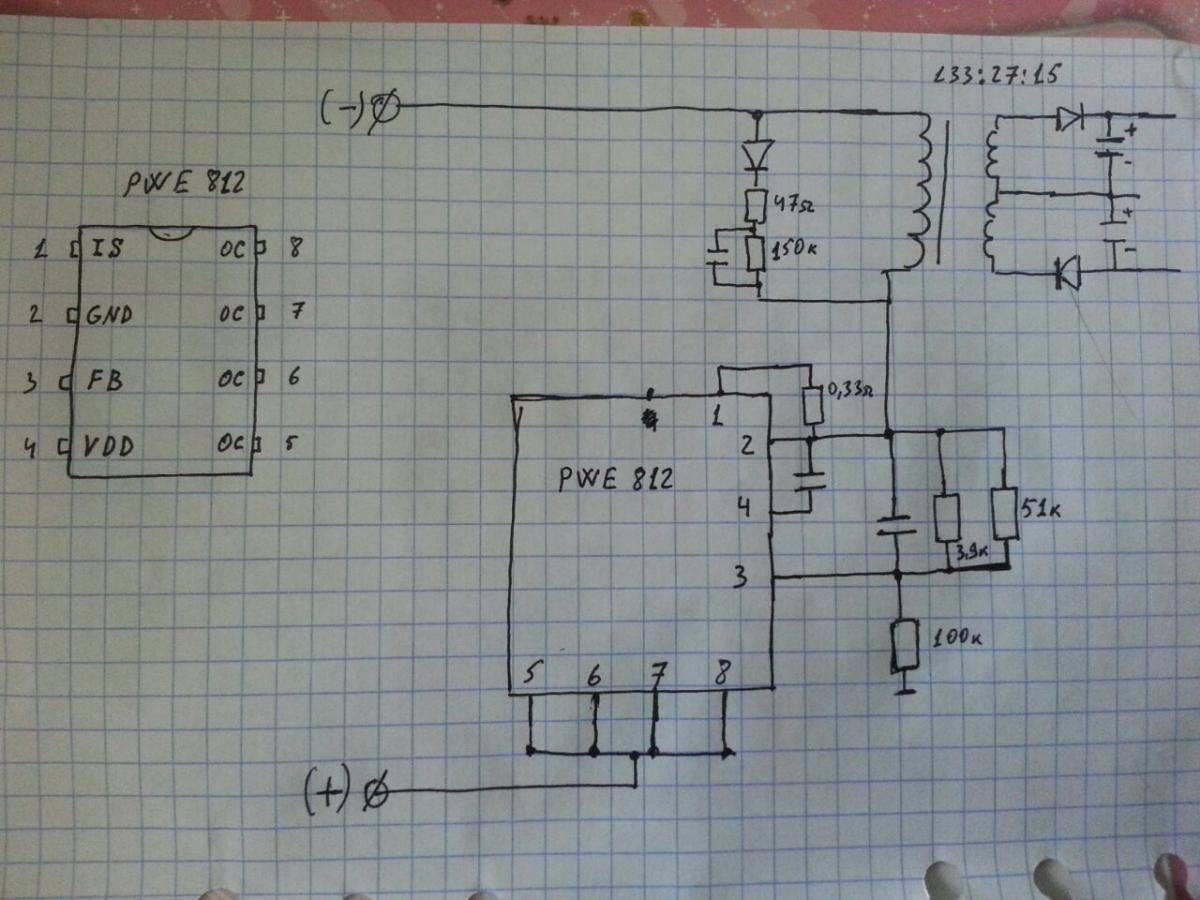 133:27:15
(-)
+
-
PWE 812
47Ω
150к
+
-
1 IS OC 8
2 GND OC 7
3 FB OC 6
4 VDD OC 5
1
0,33Ω
2
PWE 812
4
51к
3,9к
3
100к
5 6 7 8
(+)